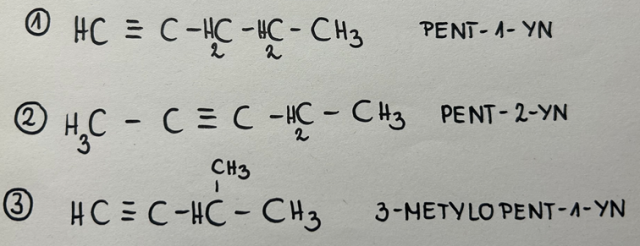 ① HC ≡ C – H₂C – H₂C – CH3 PENT-1-YN
② H₃C – C ≡ C – H₂C – CH3 PENT-2-YN
CH3
③ HC ≡ C – HC – CH3 3-METYLOPENT-1-YN